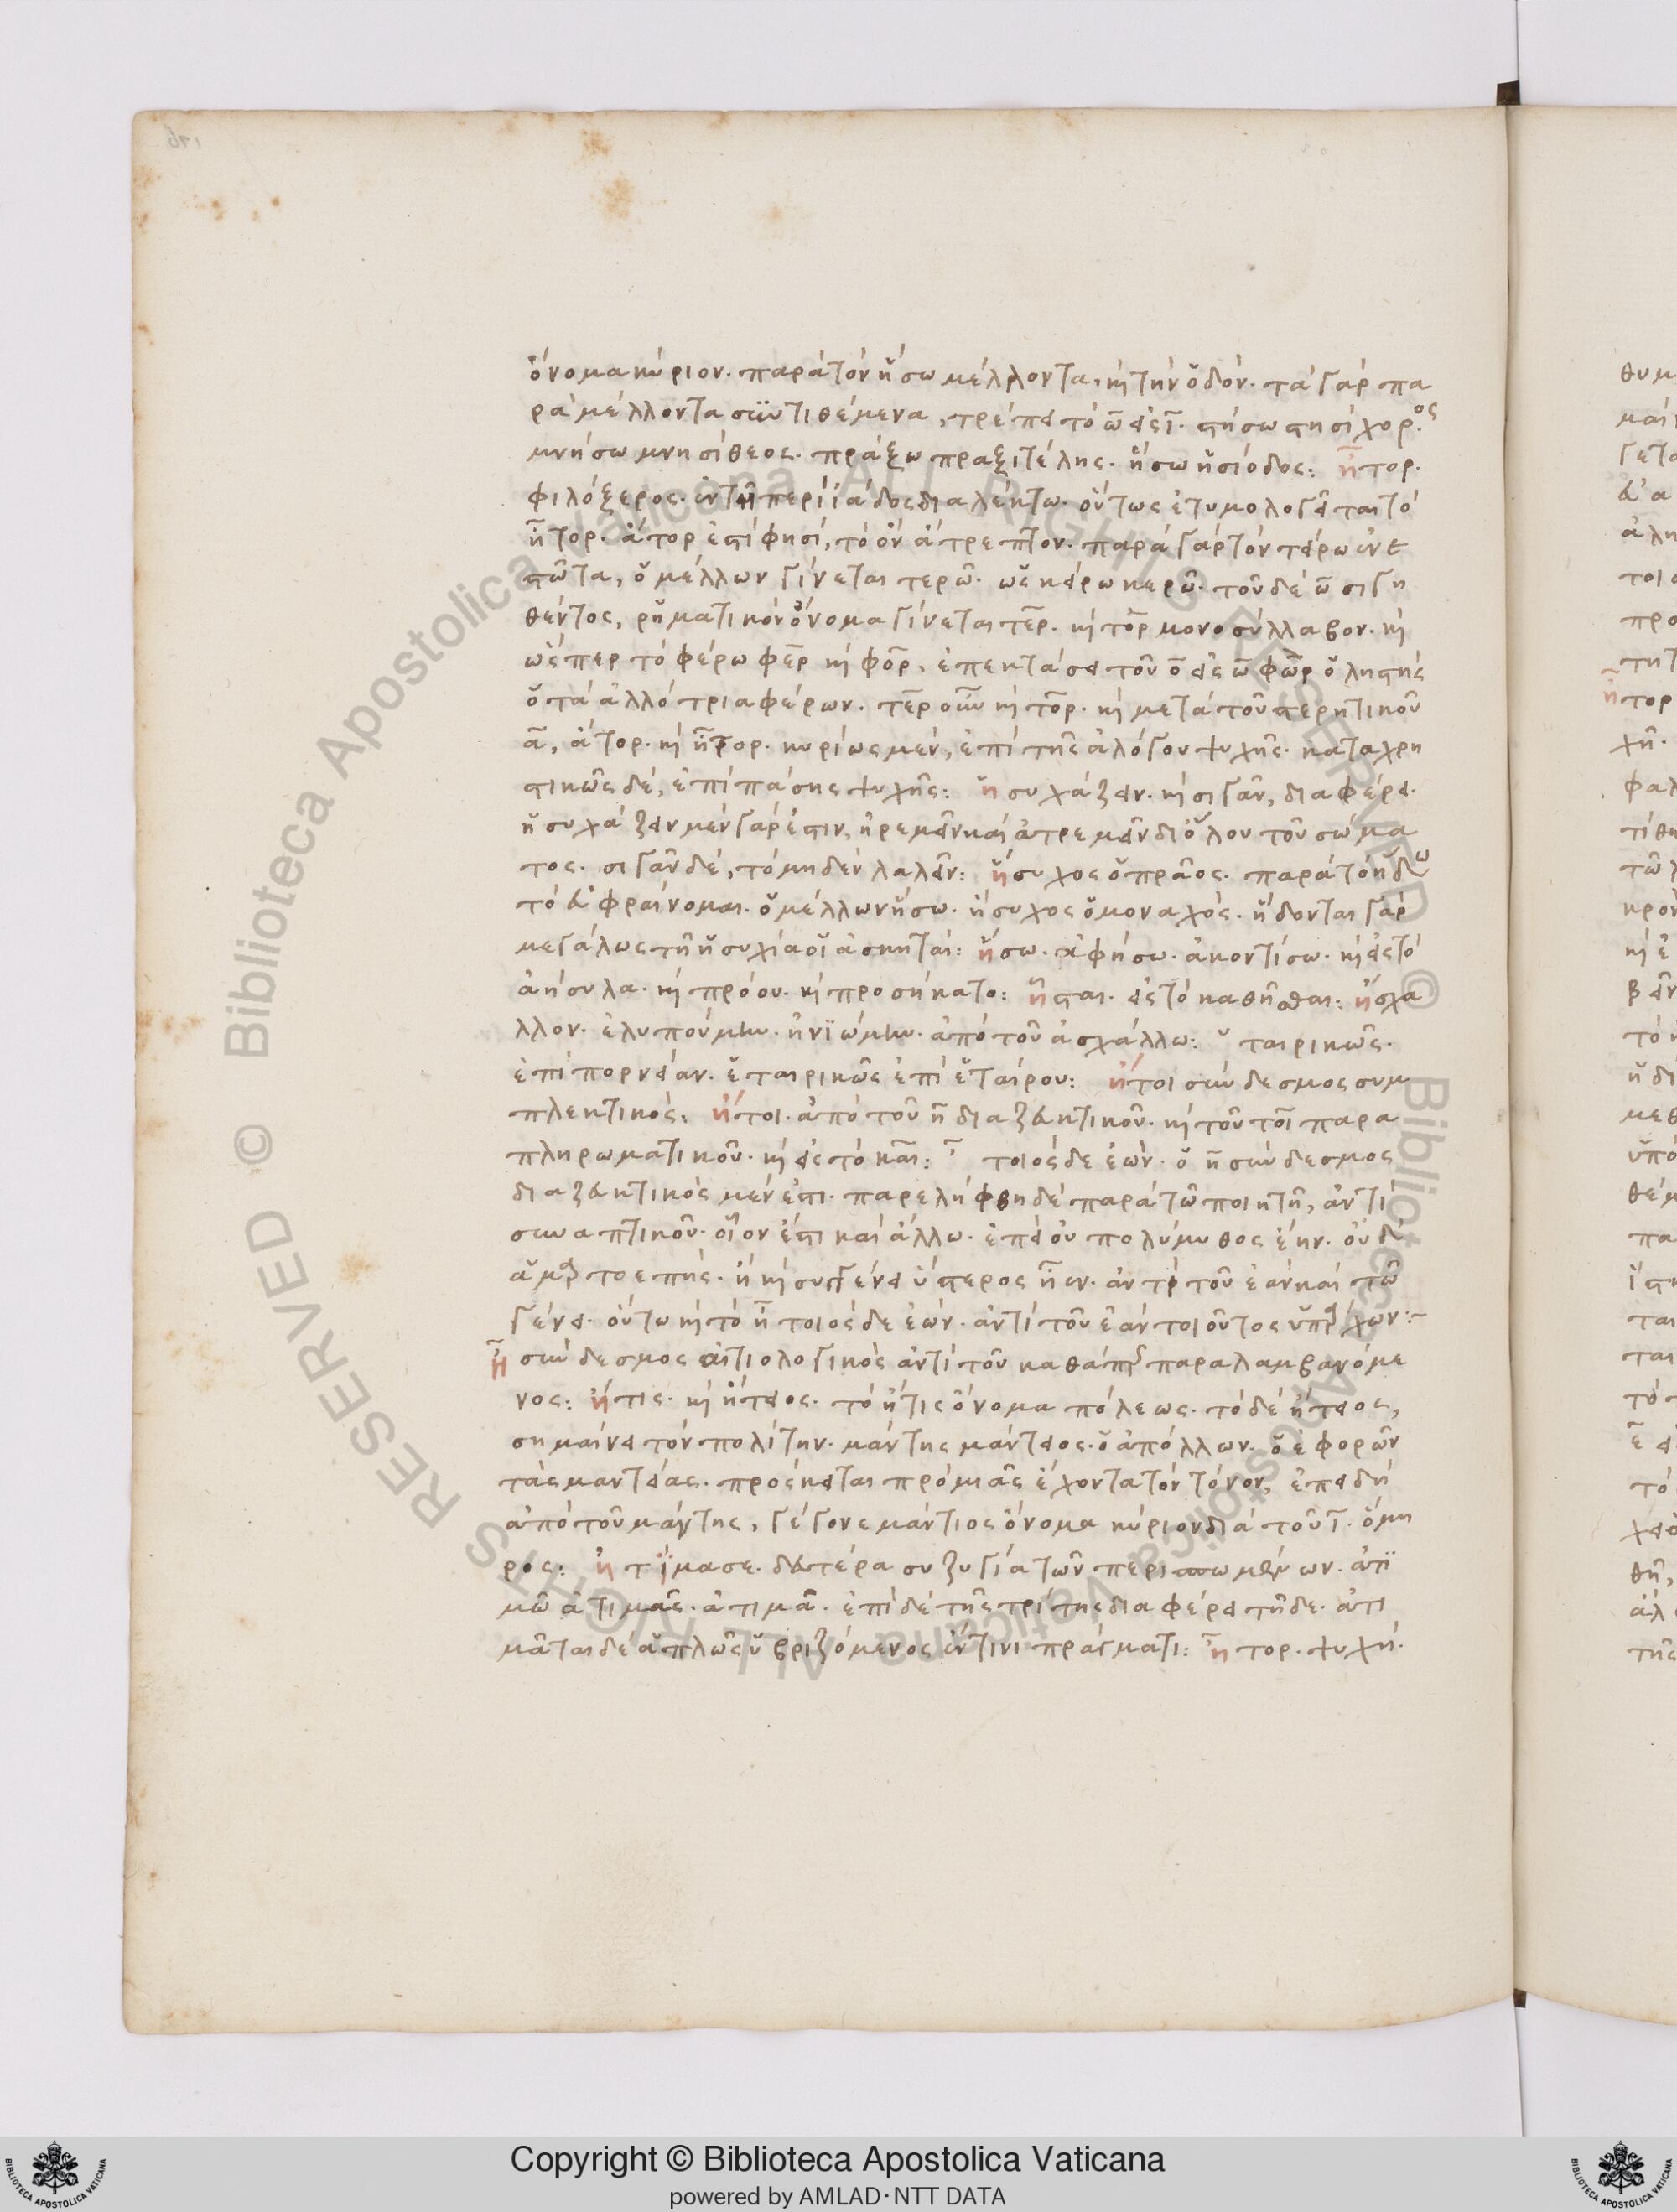 ὄνομα κύριον. παρὰ τὸν ἥσω μέλλοντα, κὶ τὴν ὁδόν. τὰ γὰρ πα
ρὰ μέλλοντα συντιθέμενα, τρέπει τὸ ω̅ εἰς ι̅. στήσω στησίχορος.
μνήσω μνησίθεος. πράξω πραξιτέλης. ἥσω ἡσίοδος: ἦτορ.
φιλόξενος. ἐν τῆ περὶ ἰάδος διαλέκτω. οὕτως ἐτυμολογεῖται τὸ
ἦτορ. ἄτορ ἐστί φησί, τὸ ὂν ἄτρεπτον. παρὰ γὰρ τὸν τείρω ἐνε
στῶτα, ὁ μέλλων γίνεται τερῶ. ὡς κείρω κερῶ. τοῦ δὲ ω̅ σιγη
θέντος, ῥηματικὸν ὄνομα γίνεται τε̅ρ. κὶ το̅ρ μονοσύλλαβον. κὶ
ὥσπερ τὸ φέρω φε̅ρ κὶ φο̅ρ, ἐπεκτάσει τοῦ ο̅ εἰς ω̅ φῶρ ὁ ληστής
ὁ τὰ ἀλλότρια φέρων. τε̅ρ οὖν κὶ το̅ρ. κὶ μετὰ τοῦ στερητικοῦ
α̅, ἄτορ. κὶ ἦτορ. κυρίως μὲν, ἐπὶ τῆς ἀλόγου ψυχῆς. καταχρη
στικῶς δὲ, ἐπὶ πάσης ψυχῆς: ἡσυχάζειν. κὶ σιγᾶν, διαφέρει.
ἡσυχάζειν μὲν γάρ ἐστιν, ἠρεμεῖν καὶ ἀτρεμεῖν δι' ὅλου τοῦ σώμα
τος. σιγᾶν δὲ, τὸ μηδὲν λαλεῖν: ἥσυχος ὁ πρᾶος. παρὰ τὸ ἥδω
τὸ εὐφραίνομαι. ὁ μέλλων ἥσω. ἥσυχος ὁ μοναχός. ἥδονται γὰρ
μεγάλως τῆ ἡσυχία οἱ ἀσκηταί: ἥσω. ἀφήσω. ἀκοντίσω. κὶ εἰς τὸ
ἀήσυλα. κὶ πρόου. κὶ προσήκατο: ἧσται. εἰς τὸ καθῆσθαι: ἤσχα
λλον. ἐλυπούμην. ἠνϊώμην. ἀπὸ τοῦ ἀσχάλλω: ταιρικῶς.
ἐπὶ πορνείαν. ἑταιρικῶς ἐπὶ ἑταίρου: ἤτοι σύνδεσμος συμ
πλεκτικός: ἤτοι. ἀπὸ τοῦ η̅ διαζευκτικοῦ. κὶ τοῦ τοι παρα
πληρωματικοῦ. κὶ εἰς τὸ και: τοιόσδε ἐών. ὁ η̅ σύνδεσμος
διαζευκτικὸς μέν ἐστι. παρελήφθη δὲ παρὰ τῶ ποιητῆ, ἀντὶ
συναπτικοῦ. οἷον ἐστὶ καὶ ἄλλω. ἐπεὶ οὐ πολύμυθος ἔην. οὐδ'
ἁμαρτοεπής. ἢ κὶ συγγένει ὕστερος ἦεν. ἀντὶ τοῦ ἐὰν καὶ τῶ
γένει. οὕτω κὶ τὸ ἢ τοιόσδε ἐών. ἀντὶ τοῦ ἐὰν τοιοῦτος ὑπάρχων:~
ἢ σύνδεσμος αἰτιολογικὸς ἀντὶ τοῦ καθάπερ παραλαμβανόμε
νος: ἤτις. κὶ ἤτειος. τὸ ἤτις ὄνομα πόλεως. τὸ δὲ ἤτειος,
σημαίνει τὸν πολίτην. μάντης μάντειος. ὁ ἀπόλλων. ὁ ἐφορῶν
τὰς μαντείας. πρόσκειται πρὸ μιᾶς ἔχοντα τὸν τόνον, ἐπειδὴ
ἀπὸ τοῦ μάντης, γέγονε μάντιος ὄνομα κύριον διὰ τοῦ ι̅. ὅμη
ρος: ἠτίμασε. δευτέρα συζυγία τῶν περισπωμένων. ἀτι
μῶ ἀτιμᾶς. ἀτιμᾶ. ἐπὶ δὲ τῆς τρίτης διαφέρει τῆδε. ἀτι
μᾶται δὲ ἁπλῶς ὑβριζόμενος ἔν τινι πράγματι: ἦτορ. ψυχή.